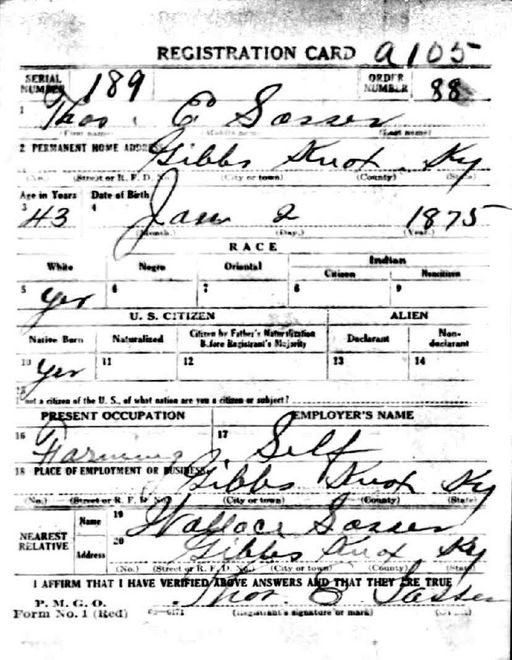 REGISTRATION CARD A105
SERIAL NUMBER 189 ORDER NUMBER 88
1 Thos. E Sasser
(First name) (Middle name) (Last name)
2 PERMANENT HOME ADDRESS Gibbs Knox Ky
(No.) (Street or R. F. D. No.) (City or town) (County) (State)
Age in Years Date of Birth
3 43 4 Jan 2 1875
(Month.) (Day.) (Year.)
RACE
White Negro Oriental Indian
Citizen Noncitizen
5 Yes 6 7 8 9
U. S. CITIZEN ALIEN
Native Born Naturalized Citizen by Father's Naturalization Before Registrant's Majority Declarant Non-declarant
10 Yes 11 12 13 14
15
If not a citizen of the U. S., of what nation are you a citizen or subject?
PRESENT OCCUPATION EMPLOYER'S NAME
16 Farming 17 Self
18 PLACE OF EMPLOYMENT OR BUSINESS Gibbs Knox Ky
(No.) (Street or R. F. D. No.) (City or town) (County) (State)
NEAREST RELATIVE Name 19 Wallace Sasser
Address 20 Gibbs Knox Ky
(No.) (Street or R. F. D. No.) (City or town) (County) (State)
I AFFIRM THAT I HAVE VERIFIED ABOVE ANSWERS AND THAT THEY ARE TRUE
P. M. G. O.
Form No. 1 (Red) Thos. E Sasser
(Registrant's signature or mark)